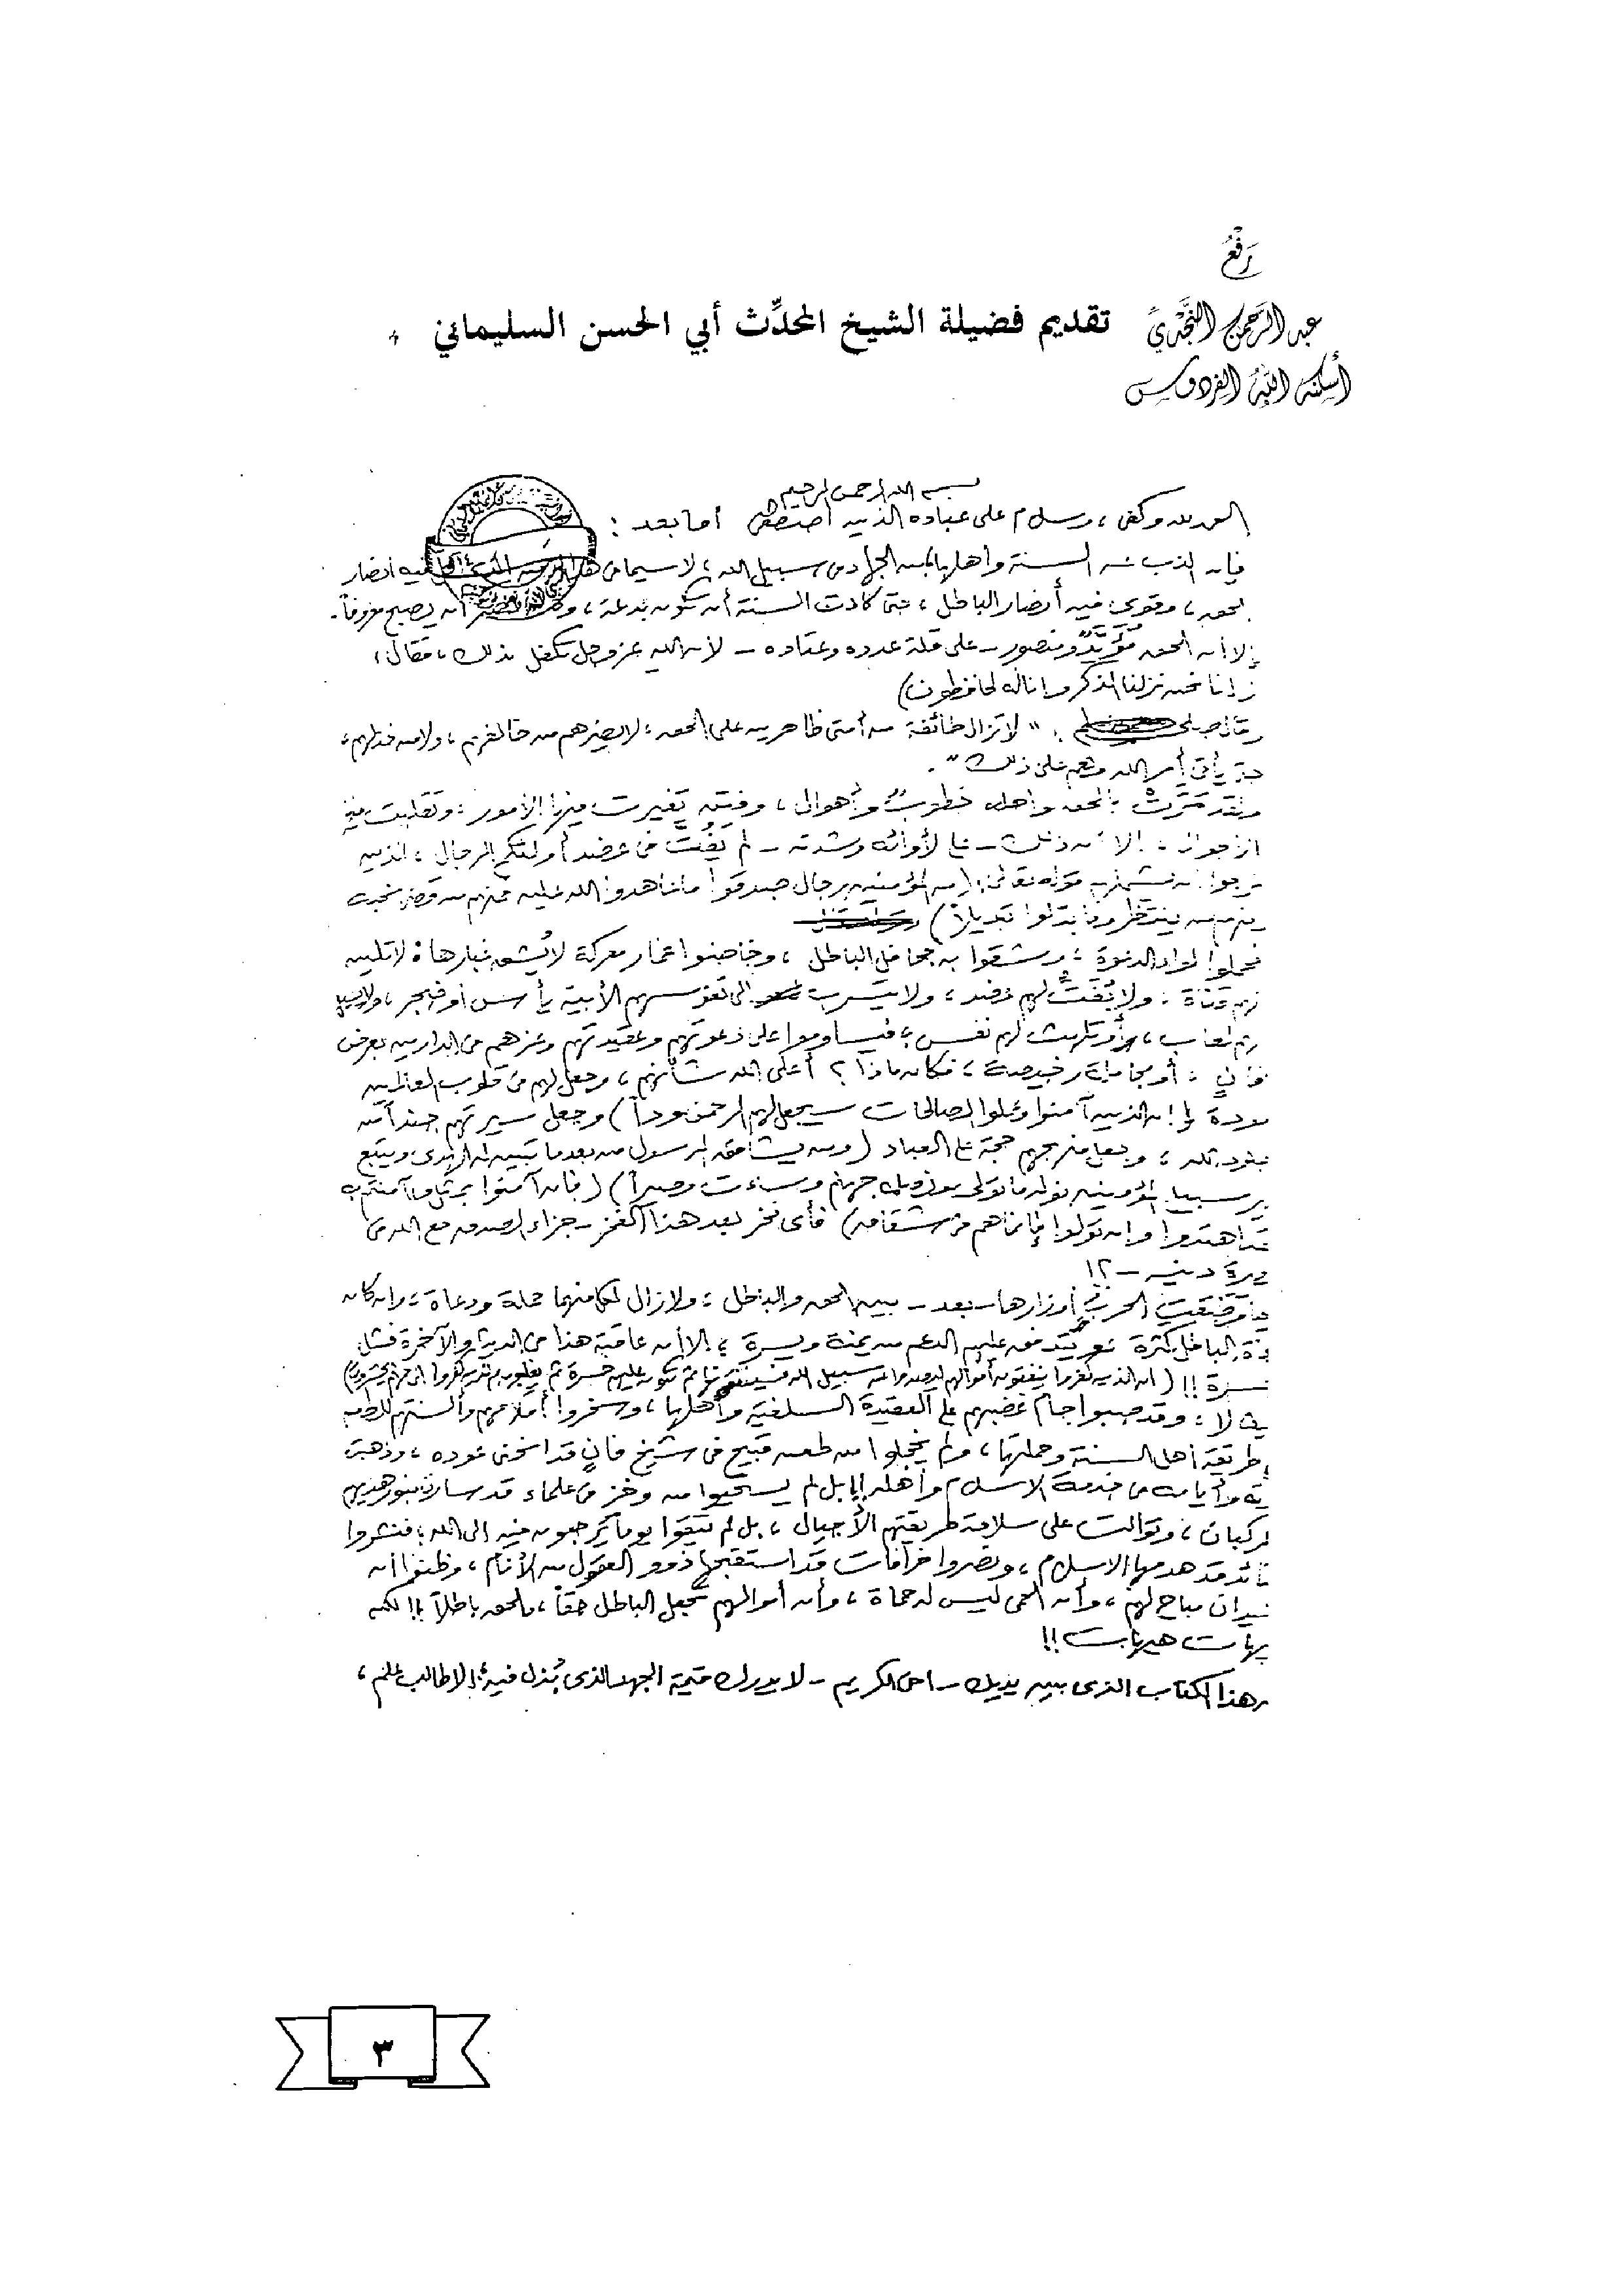 رَفْعُ
عبد الرَّحمن النَّجْديّ
أسكنه اللَّهُ الفردوس
تقديم فضيلة الشيخ المحدِّث أبي الحسن السليماني
بسم الله الرحمن الرحيم
الحمد لله وكفى، وسلام على عباده الذين اصطفى أما بعد:
فإن الذب عن السنة وأهلها من الجهاد في سبيل الله، لاسيما في هذا الزمن الذي فيه أنصار
الحق، وقوي فيه أنصار الباطل، حتى كادت السنة أن تكون بدعة، أن يصبح معروفاً.
إلا أن الحق مُؤَيَّدٌ ومنصور - على قلة عدده وعتاده - لأن الله عز وجل تكفل بذلك، فقال:
(إنا نحن نزلنا الذكر وإنا له لحافظون)
وقال صلى "لا تزال طائفة من أمتي ظاهرين على الحق، لا يضرهم من خالفهم، ولا من خذلهم،
حتى يأتي أمر الله وهم على ذلك".
ولقد مَرَّتْ بالحق وأهله خطوبٌ وأهوال، وفتن تغيرت فيها الأمور، وتقلبت فيها
الأحوال، إلا أن ذلك - على لأوائه وشدته - لم يَفُتَّ في عضد أولئكم الرجال، الذين
نرجوا أن يشملهم قوله تعالى: (من المؤمنين رجال صدقوا ما عاهدوا الله عليه فمنهم من قضى نحبه
ومنهم من ينتظر وما بدلوا تبديلاً)
فحملوا لواء الدعوة، وشقوا به جحافل الباطل، وخاضوا غمار معركة لا يُشق غبارها، لا تلين
لهم قناة، ولا يُفَتُّ لهم عضد، ولا يتسرب إلى نفوسهم الأبية يأس أو ضجر، ولا يسيل
لهم لعاب، أو تلهث لهم نفس، فيساوموا على دعوتهم وعقيدتهم وعزهم في الدارين بعرض
فانٍ، أو مجاملة رخيصة، فكان ماذا؟ أعلى الله شأنهم، وجعل لهم في قلوب العالمين
مودة (إن الذين آمنوا وعملوا الصالحات سيجعل لهم الرحمن وداً) وجعل سيرتهم جنداً من
جنود الله، وجعل منهجهم حجة على العباد (ومن يشاقق الرسول من بعد ما تبين له الهدى ويتبع
غير سبيل المؤمنين نوله ما تولى ونصله جهنم وساءت مصيراً) (فإن آمنوا بمثل ما آمنتم به
فقد اهتدوا وإن تولوا فإنما هم في شقاق) فأي فخر بعد هذا الفخر - جزاء الصدق مع الله في
نصرة دينه - ؟!
وما وَضَعَتِ الحربُ أوزارها - بعد - بين الحق والباطل، ولازال لكل منهما حملة ودعاة، وإن كان
دعاة الباطل كثرة يتدفق عليهم الدعم من يمنة ويسرة، إلا أن عاقبة هذا في الدنيا والآخرة فشل
وحسرة!! (إن الذين كفروا ينفقون أموالهم ليصدوا عن سبيل الله فسينفقونها ثم تكون عليهم حسرة ثم يغلبون والذين كفروا إلى جهنم يحشرون)
كيف لا، وقد صبوا جام غضبهم على العقيدة السلفية وأهلها، وسخروا أقلامهم وألسنتهم للطعن
في طريقة أهل السنة وحملتها، ولم يخجلوا من طعن قبيح في شيخ فانٍ قد انحنى عوده، وذهبت
وأيامه في خدمة الإسلام وأهله، بل لم يستحيوا من وخز في علماء قد سارت بنور هديهم
الركبان، وتوالت على سلامة طريقتهم الأجيال، بل لم يتقوا يوماً يَرجعون فيه إلى الله، فنشروا
عقائد قد هدمها الإسلام، ونصروا خرافات قد استقبحها ذوو العقول من الأنام، وظنوا أن
الميدان مباح لهم، وأن الحمى ليس له حماة، وأن أموالهم تجعل الباطل حقاً، والحق باطلاً!! لكن
هيهات هيهات!!
وهذا الكتاب الذي بين يديك - أخي الكريم - لا يدرك قيمة الجهد الذي بُذل فيه، إلا طالب علم،
٣